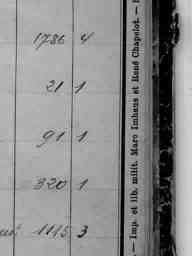 1786 4
21 1
91 1
320 1
1115 3
— Imp. et lib. milit. Marc Imhaus et René Chapelot. —